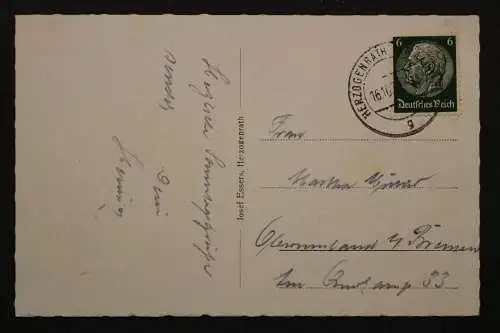 Herzliche Sonntagsgrüße
sendet
Dein
Josef Essers, Herzogenrath
HERZOGENRATH
16.10.
g
6 6
Deutsches Reich
Frau
Martha
Oberneuland b/ Bremen
Am 33